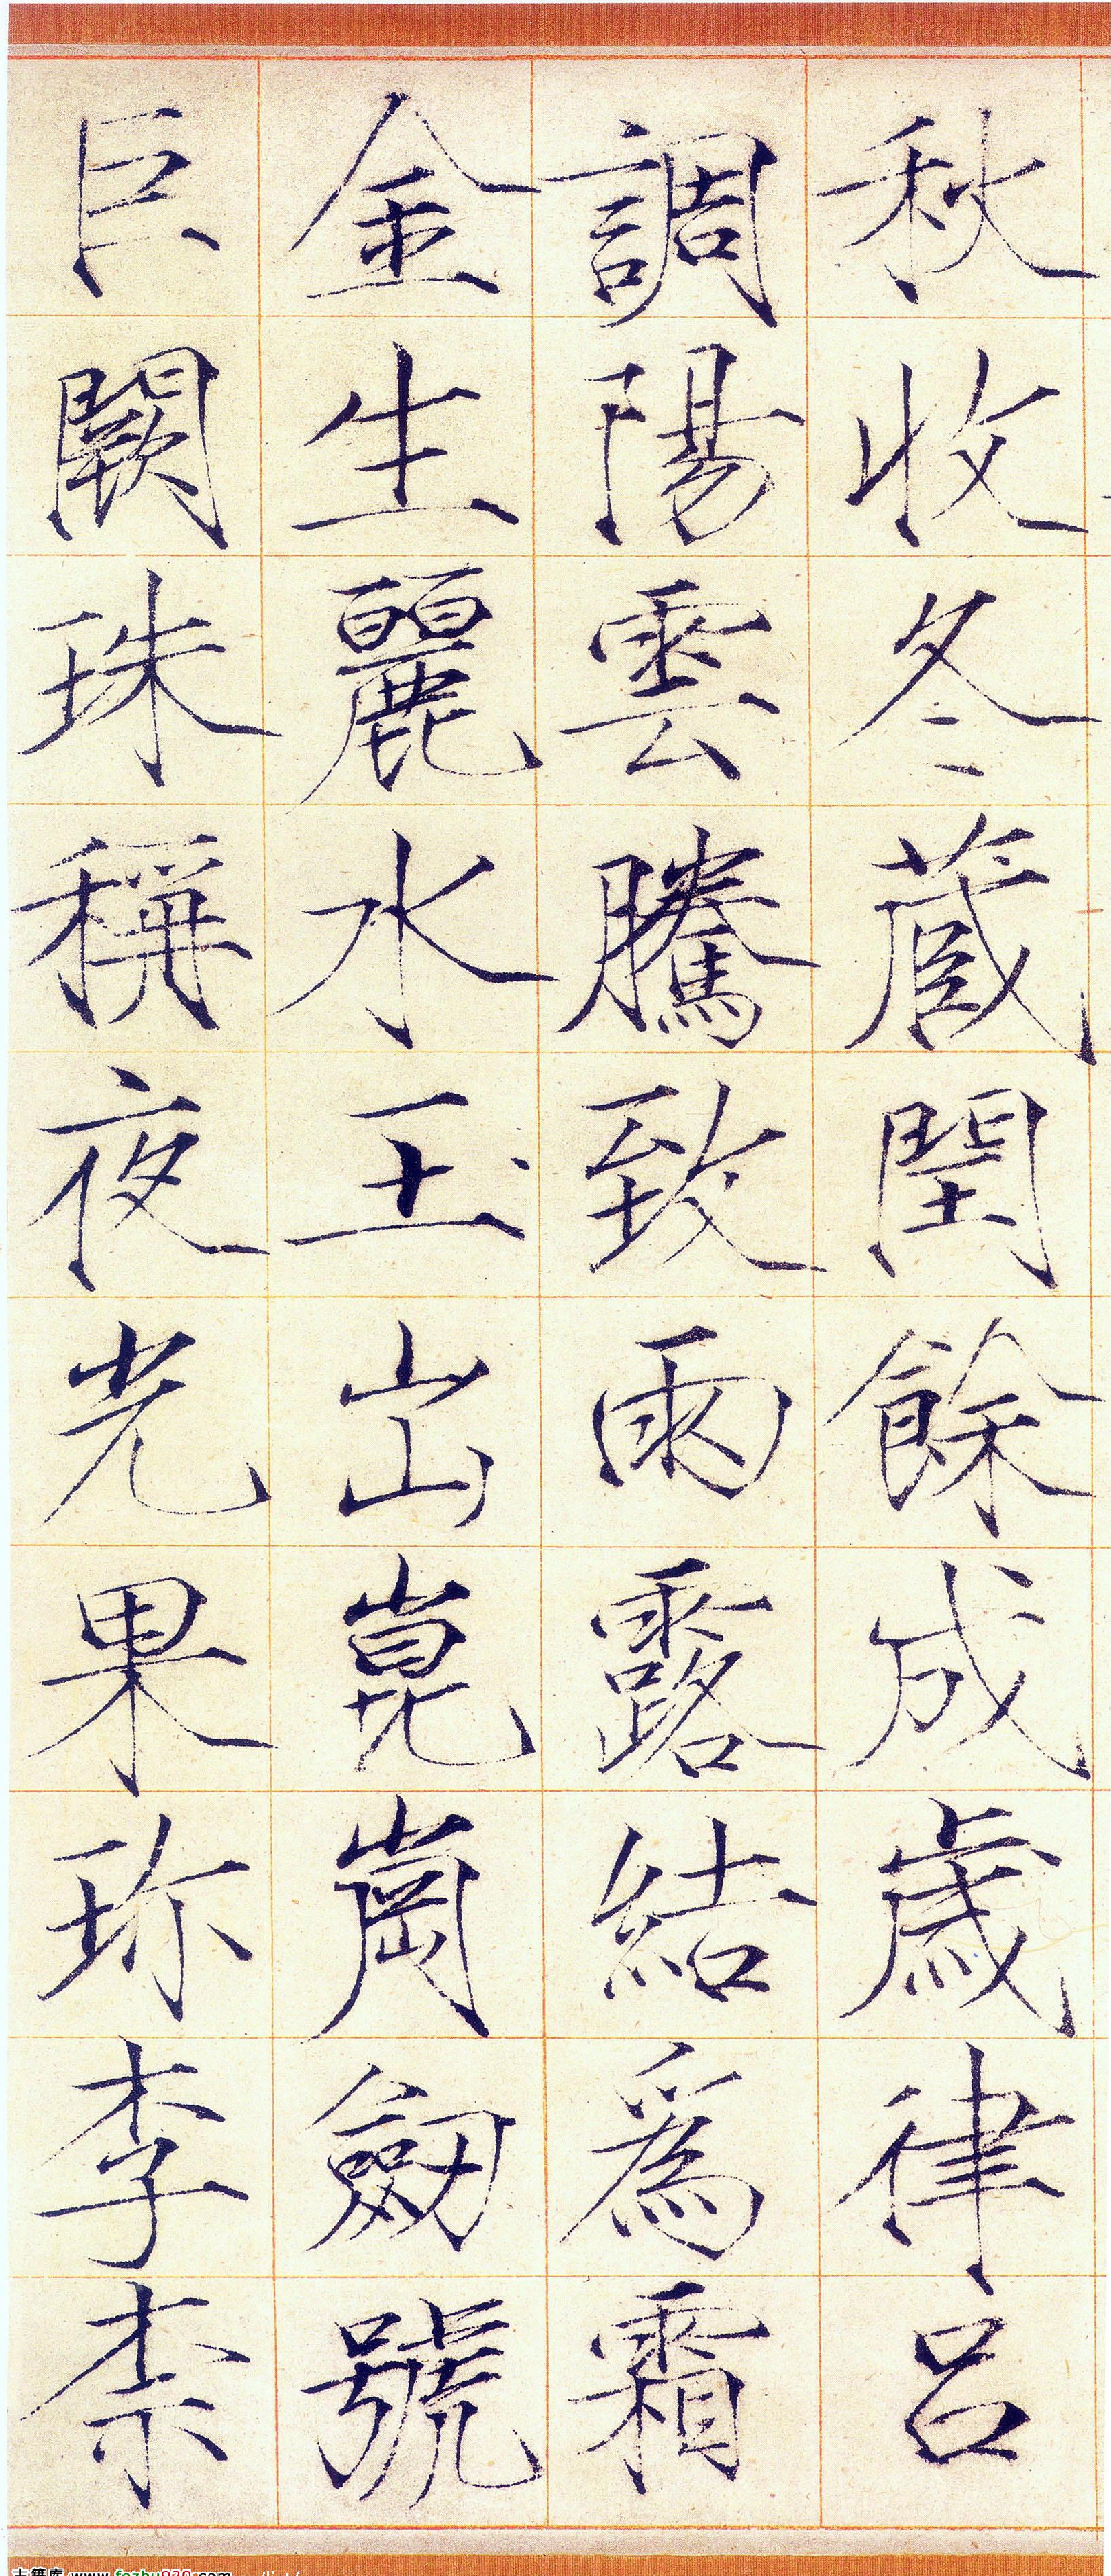 秋收冬蔵閏餘成歳律呂
調陽雲騰致雨露結爲霜
金生麗水玉出崑崗劔號
巨闕珠稱夜光果珎李柰
古籍库 www.fozhu920.com